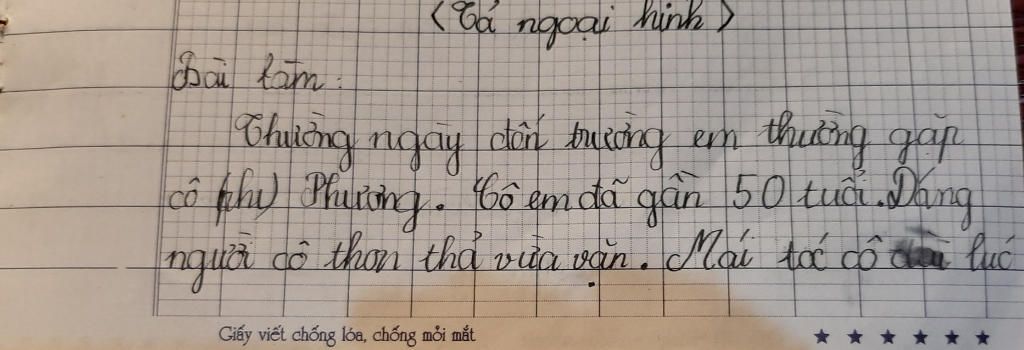 (Tả ngoại hình)
Bài làm:
Thường ngày đến trường em thường gặp
cô (thu) Phương. Cô em đã gần 50 tuổi. Dáng
người cô thon thả vừa vặn. Mái tóc cô lúc
Giấy viết chống lóa, chống mỏi mắt